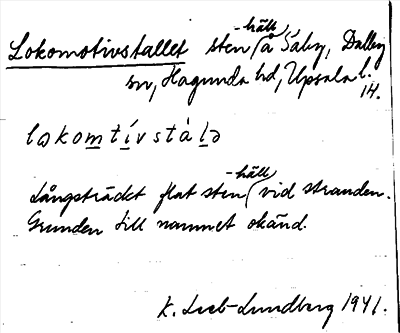 Lokomotivstallet sten-häll å Säby, Dalby
sn, Hagunda hd, Upsala l.
14.
lɷkomtívstàlə
Långsträckt flat sten-häll vid stranden.
Grunden till namnet okänd.
K. Leeb-Lundberg 1941.